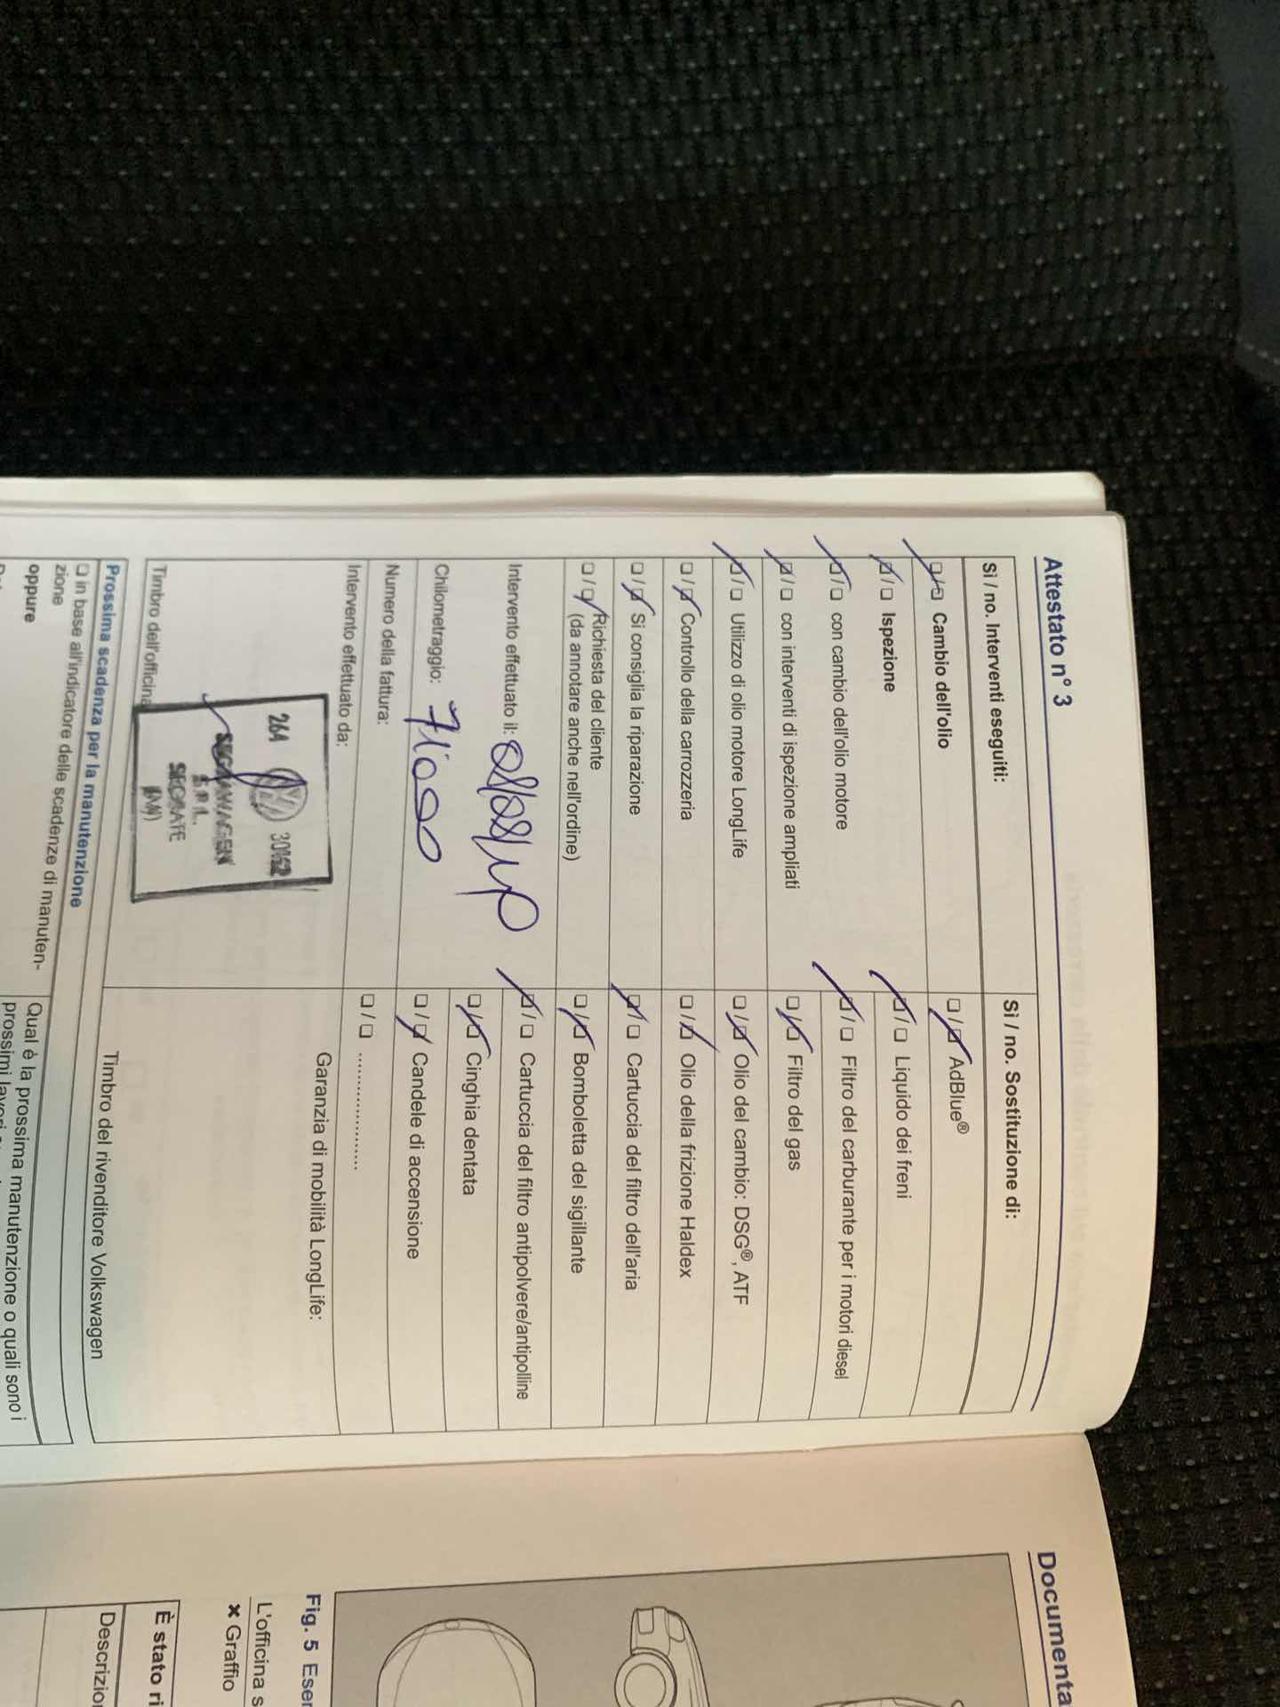 Attestato n° 3
Sì / no. Interventi eseguiti:
Cambio dell'olio
Ispezione
con cambio dell'olio motore
con interventi di ispezione ampliati
Utilizzo di olio motore LongLife
Controllo della carrozzeria
Si consiglia la riparazione
Richiesta del cliente
(da annotare anche nell'ordine)
Intervento effettuato il:
Chilometraggio:
Numero della fattura:
Intervento effettuato da:
Timbro dell'officina
264
SEGRATE
(MI)
Sì / no. Sostituzione di:
AdBlue®
Liquido dei freni
Filtro del carburante per i motori diesel
Filtro del gas
Olio del cambio: DSG®, ATF
Olio della frizione Haldex
Cartuccia del filtro dell'aria
Bomboletta del sigillante
Cartuccia del filtro antipolvere/antipolline
Cinghia dentata
Candele di accensione
..................
Garanzia di mobilità LongLife:
Timbro del rivenditore Volkswagen
Prossima scadenza per la manutenzione
in base all'indicatore delle scadenze di manuten-
zione
oppure
Qual è la prossima manutenzione o quali sono i
prossimi
Documenta
Fig. 5 Eser
L'officina s
× Graffio
È stato ri
Descrizio